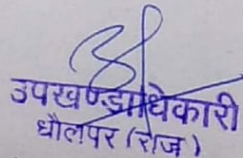 उपखण्डाधिकारी
धौलपुर (राज)